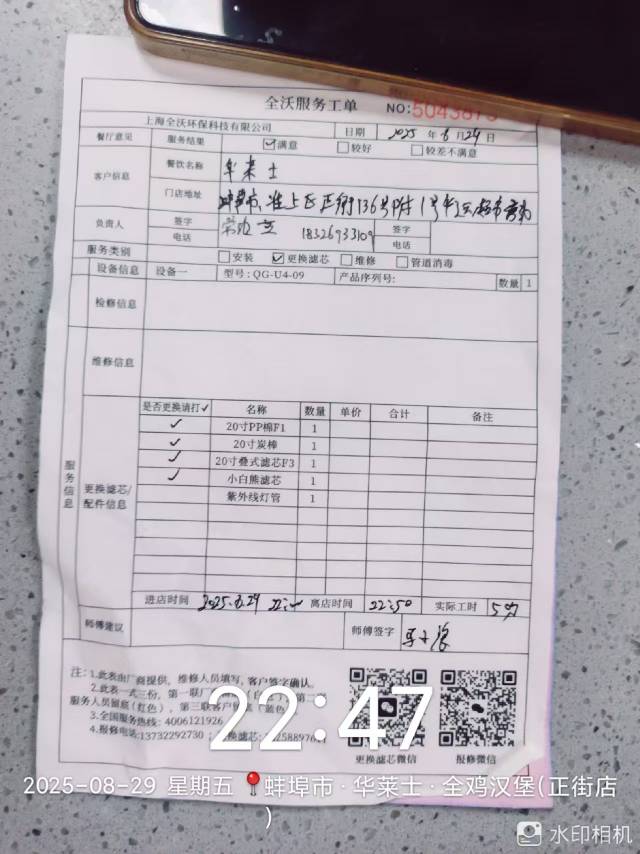 全沃服务工单 NO:5043873
上海全沃环保科技有限公司 日期 2025 年 8 月 29 日
餐厅意见 服务结果 ☑满意 □较好 □较差不满意
客户信息 餐饮名称 华莱士
门店地址 蚌埠市淮上区正街136号附1号
负责人 签字 签字
电话 18326933109 电话
服务类别 □安装 ☑更换滤芯 □维修 □管道消毒
设备信息 设备一 型号:QG-U4-09 产品序列号: 数量 1
检修信息
维修信息
服务信息
更换滤芯/
配件信息
是否更换请打✓ 名称 数量 单价 合计 备注
✓ 20寸PP棉F1 1
✓ 20寸炭棒 1
✓ 20寸叠式滤芯F3 1
✓ 小白熊滤芯 1
紫外线灯管 1
进店时间 2025.8.29 离店时间 22:50 实际工时
师傅建议 师傅签字
注:1.此表由厂商提供,维修人员填写,客户签字确认。
2.此表一式三份,第一联厂
服务人员留底(红色),第三联客户
3.全国服务热线:4006121926
4.报修电话:13732292730
更换滤芯微信 报修微信
22:47
2025-08-29 星期五 蚌埠市·华莱士·全鸡汉堡(正街店
)
水印相机